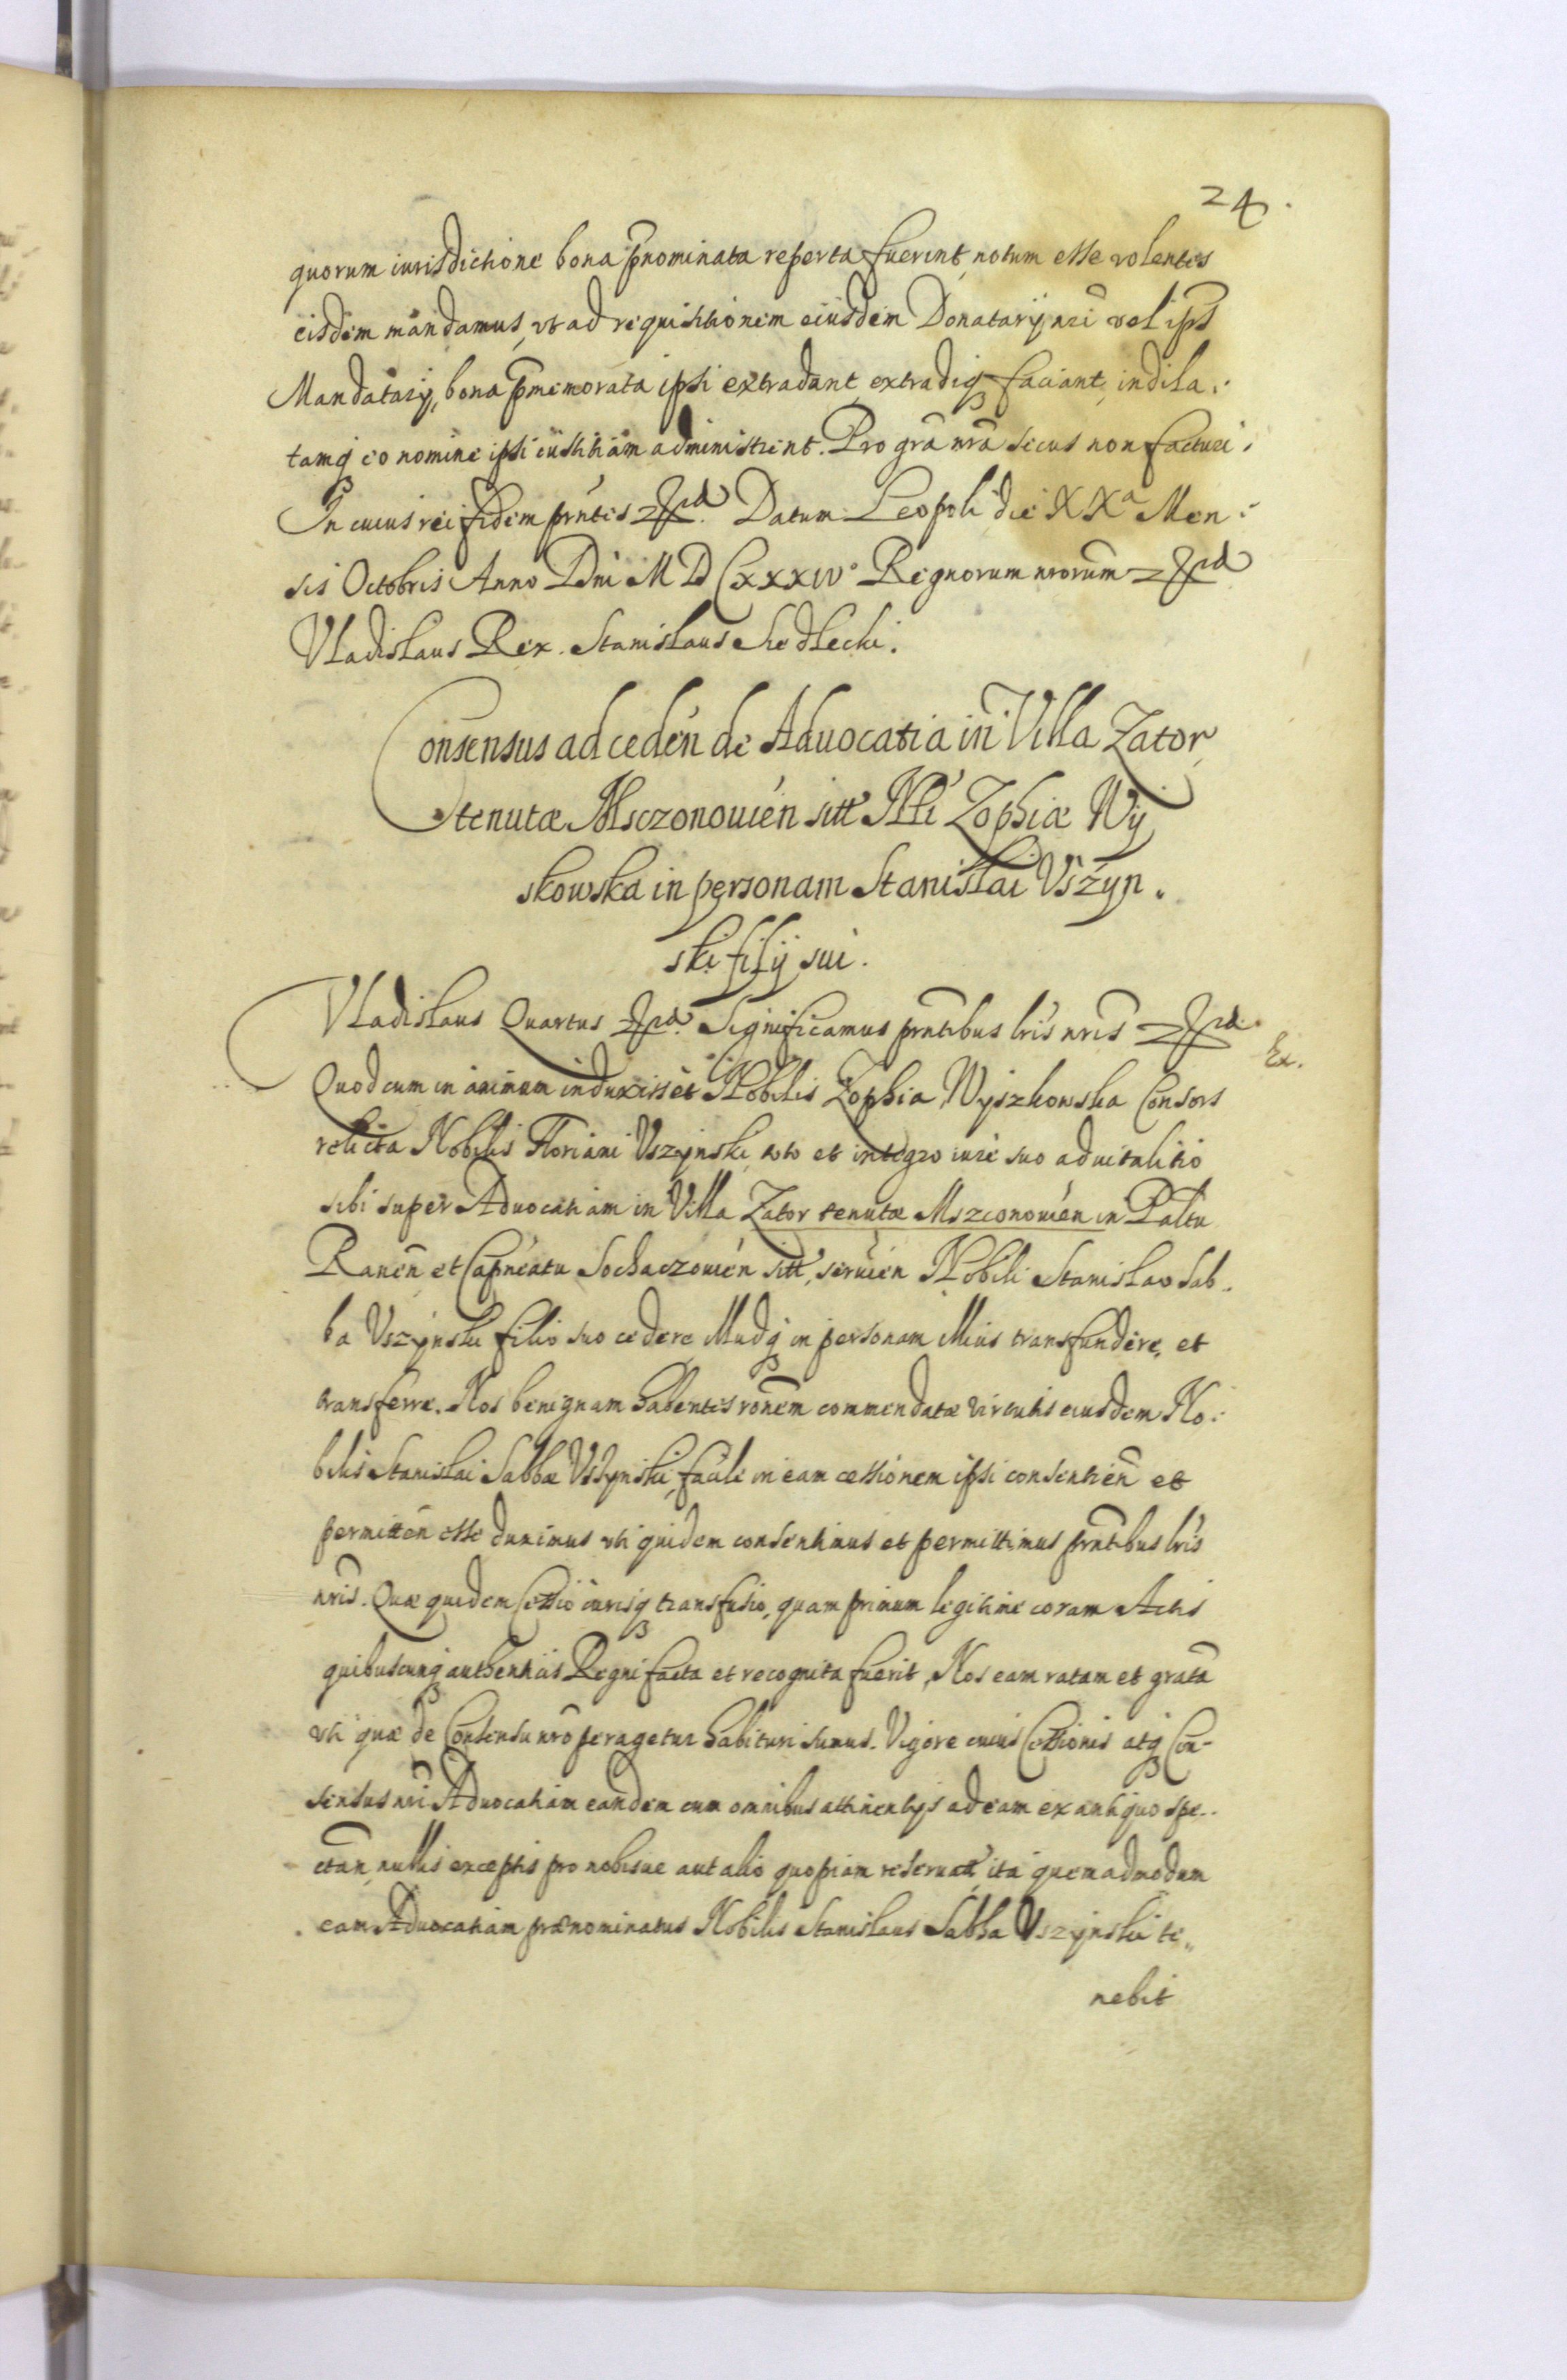 24.
quorum iurisdictione bona pnominata reperta fuerint, notum esse volentes
eisdem mandamus, vt ad requisitionem eiusdem Donatarij nri vel ips
Mandatarij, bona pmemorata ipsi extradant, extradiq faciant, indila:
tamq eo nomine ipsi iustitiam administrent. Pro gra nra secus non facturi.
In cuius rei fidem pntes Datum Leopoli die XXa Men:
sis Octobris Anno Dni MDCxxxiv° Regnorum nrorum
Vladislaus Rex. Stanislaus Siedlecki.
Consensus ad ceden de Aduocatia in Villa Zator
tenutæ Msczonouien sitt Nli Zophiæ Wy
skowska in personam Stanislai Vszyn.
ski filij sui.
Vladislaus Quartus Significamus pntibus lris nris
Ex.
Quod cum in animum induxisset Nobilis Zophia Wyszkowska Consors
relicta Nobilis Floriani Vszynski, toto et integro iure suo aduitalitio
sibi super Aduocatiam in Villa Zator tenutæ Mszczonouien in Paltu
Rauen et Capneatu Sochaczouien sitt, seruien Nobili Stanislao Sab.
ba Vszynski filio suo cedere illudq in personam illius transfundere, et
transferre. Nos benignam habentes ronem commendatæ virtutis eiusdem No:
bilis Stanislai Sabbæ Vszynski, facile in eam cessionem ipsi consentien et
permitten esse duximus vti quidem consentimus et permittimus pntibus lris
nris. Quæ quidem Cessio iurisq transfusio, quam primum legitime coram Actis
quibuscunq authenticis Regni facta et recognita fuerit, Nos eam ratam et grata
vti quæ de Consensu nro peragetur habituri sumus. Vigore cuius Cessionis atq Con-
sensus nri Aduocatiam eandem cum omnibus attinentijs ad eam ex antiquo spe..
ctan, nullis exceptis pro nobisue aut alio quopiam reseruatt, ita quemadmodum
eam Aduocatiam prænominatus Nobilis Stanislaus Sabba Vszynski te„
nebit